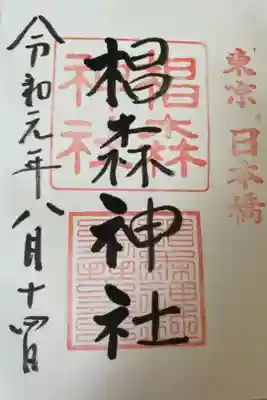 東京 日本橋
椙森神社
椙森神社
令和元年八月十四日